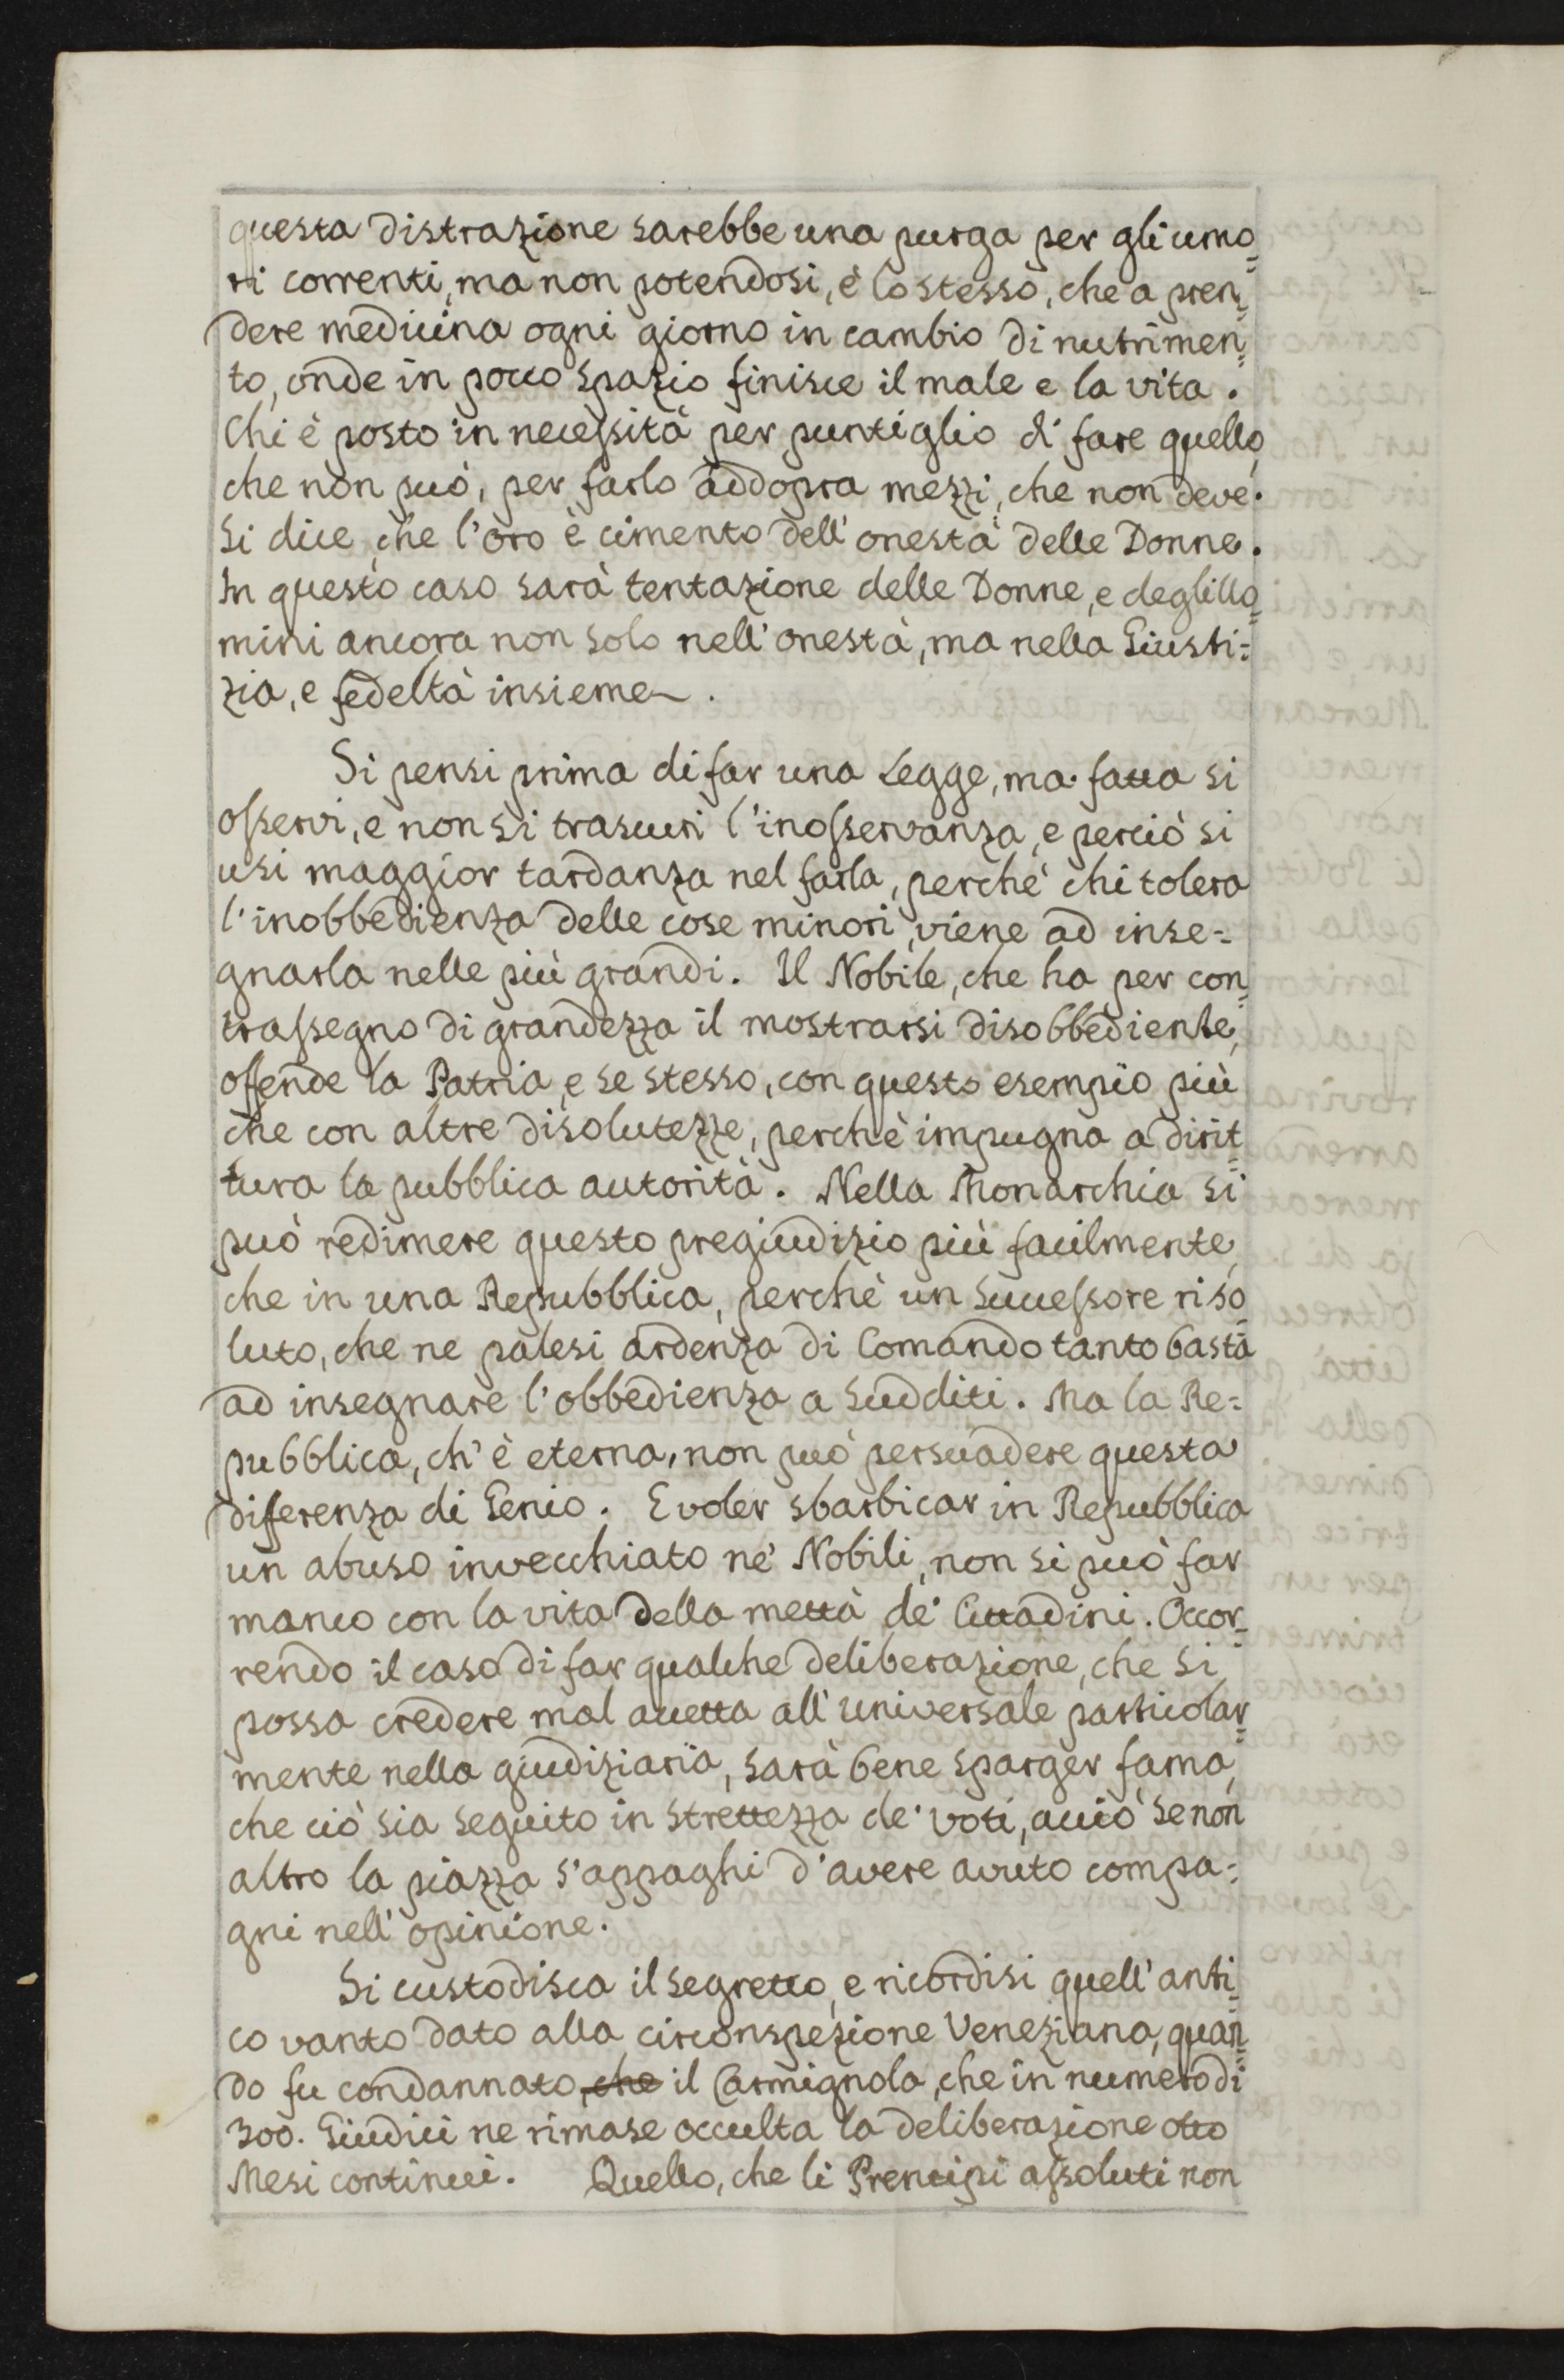 questa distrazione sarebbe una purga per gli umo=
ri correnti, ma non potendosi, è lo stesso, che a pren=
dere medicina ogni giorno in cambio di nutrimen=
to, onde in poco spazio finisce il male e la vita.
Chi è posto in necessità per puntiglio di fare quello,
che non può, per farlo addopra mezzi, che non deve.
Si dice, che l'oro è cimento dell'onestà delle Donne.
In questo caso sarà tentazione delle Donne, e degl'Uo=
mini ancora non solo nell'onestà, ma nella Giusti=
zia, e fedeltà insieme.
Si pensi prima di far una Legge, ma fatta si
osservi, e non si trascuri l'inosservanza, e perciò si
usi maggior tardanza nel farla, perche' chi tolera
l'inobbedienza delle cose minori, viene ad inse=
gnarla nelle più grandi. Il Nobile, che ha per con=
trassegno di grandezza il mostrarsi disobbediente,
offende la Patria, e se stesso, con questo esempio più
che con altre disolutezze, perchè impugna a dirit=
tura la pubblica autorità. Nella Monarchia si
può redimere questo pregiudizio più facilmente,
che in una Repubblica, perchè un Successore riso=
luto, che ne palesi ardenza di Comando tanto basta
ad insegnare l'obbedienza a Sudditi. Ma la Re=
pubblica, ch'è eterna, non può persuadere questa
diferenza di Genio. E voler sbarbicar in Repubblica
un abuso invecchiato ne' Nobili, non si può far
manco con la vita della mettà de' Cittadini. Occor=
rendo il caso di far qualche deliberazione, che si
possa credere mal accetta all'universale particolar=
mente nella giudiziaria, sarà bene sparger fama,
che ciò sia seguito in strettezza de' voti, acciò se non
altro la piazza s'appaghi d'avere avuto compa=
gni nell'opinione.
Si custodisca il segretto, e ricordisi quell'anti=
co vanto dato alla circonspezione Veneziana, quan=
do fu condannato, che il Carmignola, che in numero di
300. Giudici ne rimase occulta la deliberazione otto
Mesi continui. Quello, che li Prencipi assoluti non